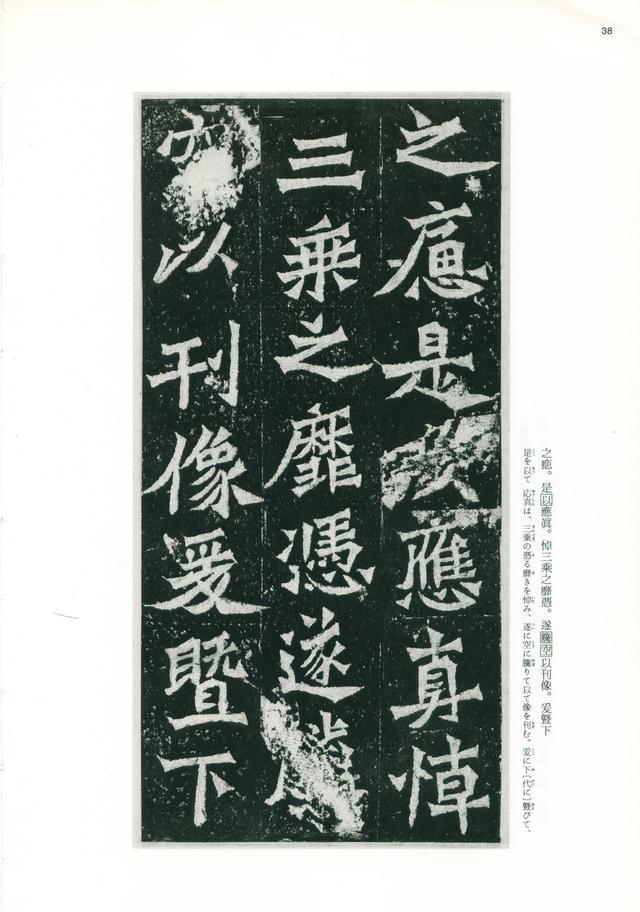 38
之㾼是以應真悼
三乗之靡憑遂騰
空以刊像爰曁下
之㾼。是以應眞。悼三乘之靡憑。遂騰空以刊像。爰曁下
是を以て応真は、三乗の憑る靡きを悼み、遂に空に騰りて以て像を刊む。爰に下〔代に〕曁びて、